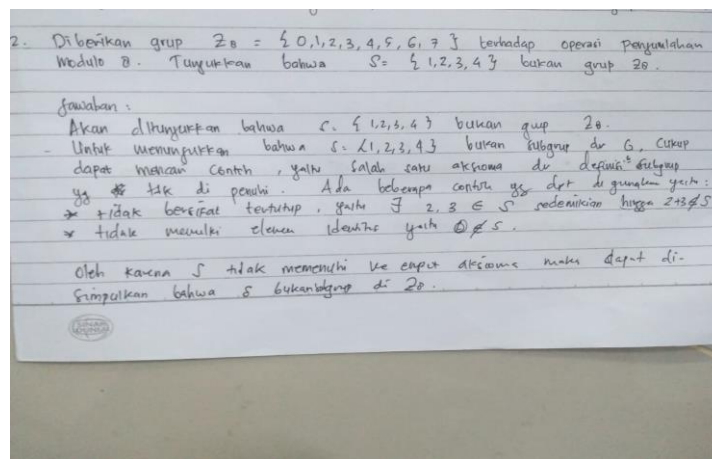 2. Diberikan grup Z8 = { 0,1,2,3,4,5,6,7 } terhadap operasi penjumlahan
modulo 8. Tunjukkan bahwa S = { 1,2,3,4 } bukan grup Z8.
Jawaban :
Akan ditunjukkan bahwa S = { 1,2,3,4 } bukan grup Z8.
- Untuk menunjukkan bahwa S = {1,2,3,4} bukan subgrup dr G, cukup
dapat mencari contoh, yaitu salah satu aksioma dr definisi subgrup
yg tdk di penuhi. Ada beberapa contoh yg dpt di gunakan yaitu :
* tidak bersifat tertutup, yaitu ∃ 2, 3 ∈ S sedemikian hingga 2+3 ∉ S
* tidak memiliki elemen identitas yaitu 0 ∉ S.
Oleh karena S tidak memenuhi ke empat aksioma maka dapat di-
simpulkan bahwa S bukan subgrup di Z8.